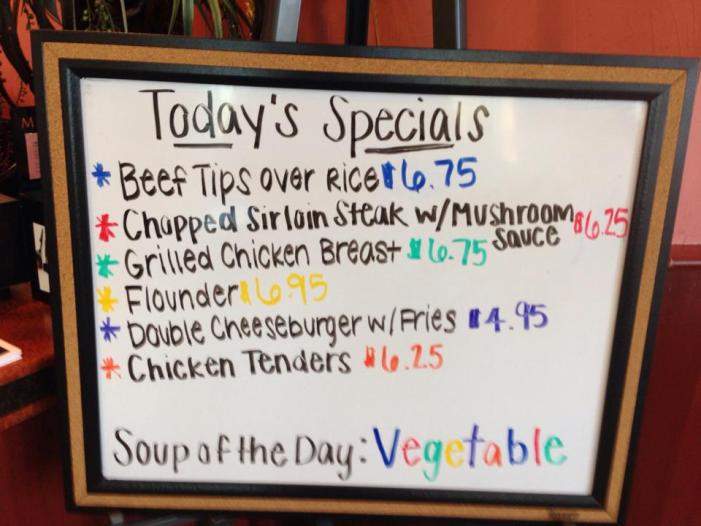 Today's Specials
* Beef Tips over Rice $6.75
* Chopped Sirloin Steak w/Mushroom $6.25
Sauce
* Grilled Chicken Breast $6.75
* Flounder $6.95
* Double Cheeseburger w/Fries $4.95
* Chicken Tenders $6.25
Soup of the Day: Vegetable